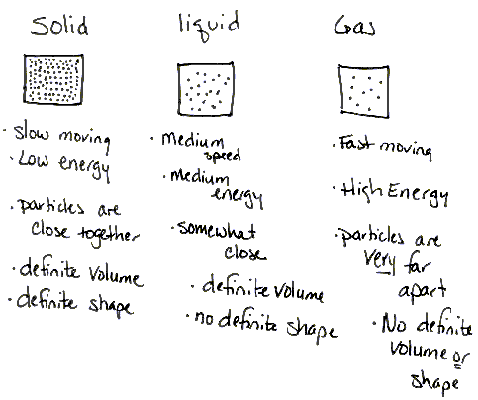 Solid
· Slow moving
· Low energy
· particles are
close together
· definite Volume
· definite shape
liquid
· Medium
speed
· Medium
energy
· somewhat
close
· definite volume
· no definite shape
Gas
· Fast moving
· High Energy
· particles are
very far
apart
· No definite
volume or
shape